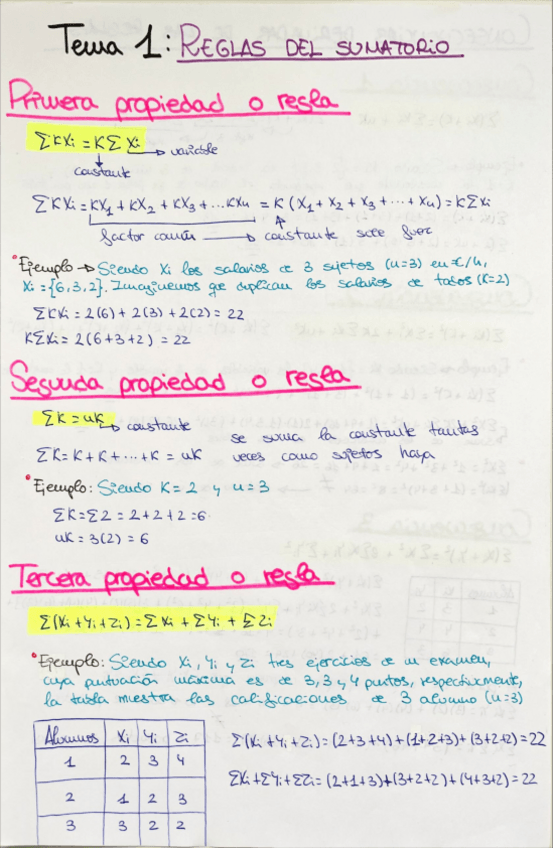 Tema 1: REGLAS DEL SUMATORIO
Primera propiedad o regla
ΣKXi = KΣXi
variable
constante
ΣKXi = KX1 + KX2 + KX3 + ... KXn = K (X1 + X2 + X3 + ... + Xn) = KΣXi
factor común → constante sale fuera
*Ejemplo → Siendo Xi los salarios de 3 sujetos (n=3) en €/h,
Xi = {6,3,2}. Imaginemos que duplican los salarios de todos (K=2)
ΣKXi = 2(6) + 2(3) + 2(2) = 22
KΣXi = 2(6+3+2) = 22
Segunda propiedad o regla
ΣK = nK
constante
se suma la constante tantas
ΣK = K + K + ... + K = nK veces como sujetos haya
*Ejemplo: Siendo K = 2 y n = 3
ΣK = Σ2 = 2+2+2 = 6
nK = 3(2) = 6
Tercera propiedad o regla
Σ(Xi + Yi + Zi) = ΣXi + ΣYi + ΣZi
*Ejemplo: Siendo Xi, Yi y Zi tres ejercicios de un examen,
cuya puntuación máxima es de 3, 3 y 4 puntos, respectivamente,
la tabla muestra las calificaciones de 3 alumno (n=3)
Alumnos Xi Yi Zi
1 2 3 4
2 1 2 3
3 3 2 2
Σ(Xi + Yi + Zi) = (2+3+4) + (1+2+3) + (3+2+2) = 22
ΣXi + ΣYi + ΣZi = (2+1+3) + (3+2+2) + (4+3+2) = 22